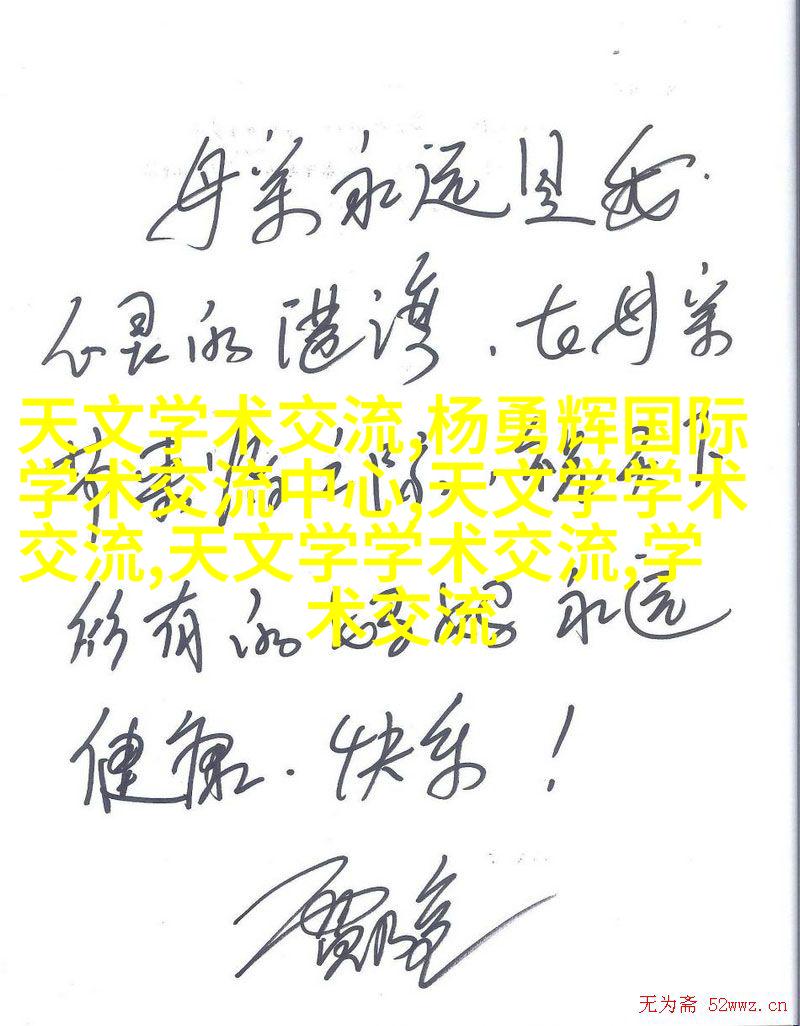 母亲永远是我
心灵的港湾，在母亲
节来临之际，祝天下
所有的母亲永远
健康、快乐！
天文学术交流,杨勇辉国际
学术交流中心,天文学学术
交流,天文学学术交流,学
术交流
无为斋 52wwz.cn